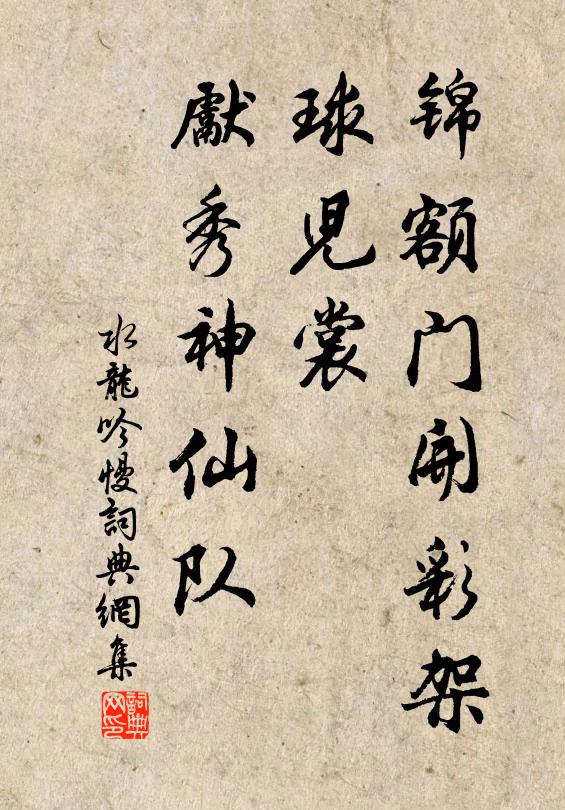 锦额门开彩架
球儿裳
献秀神仙队
水龍吟慢詞典網集
詞典网印